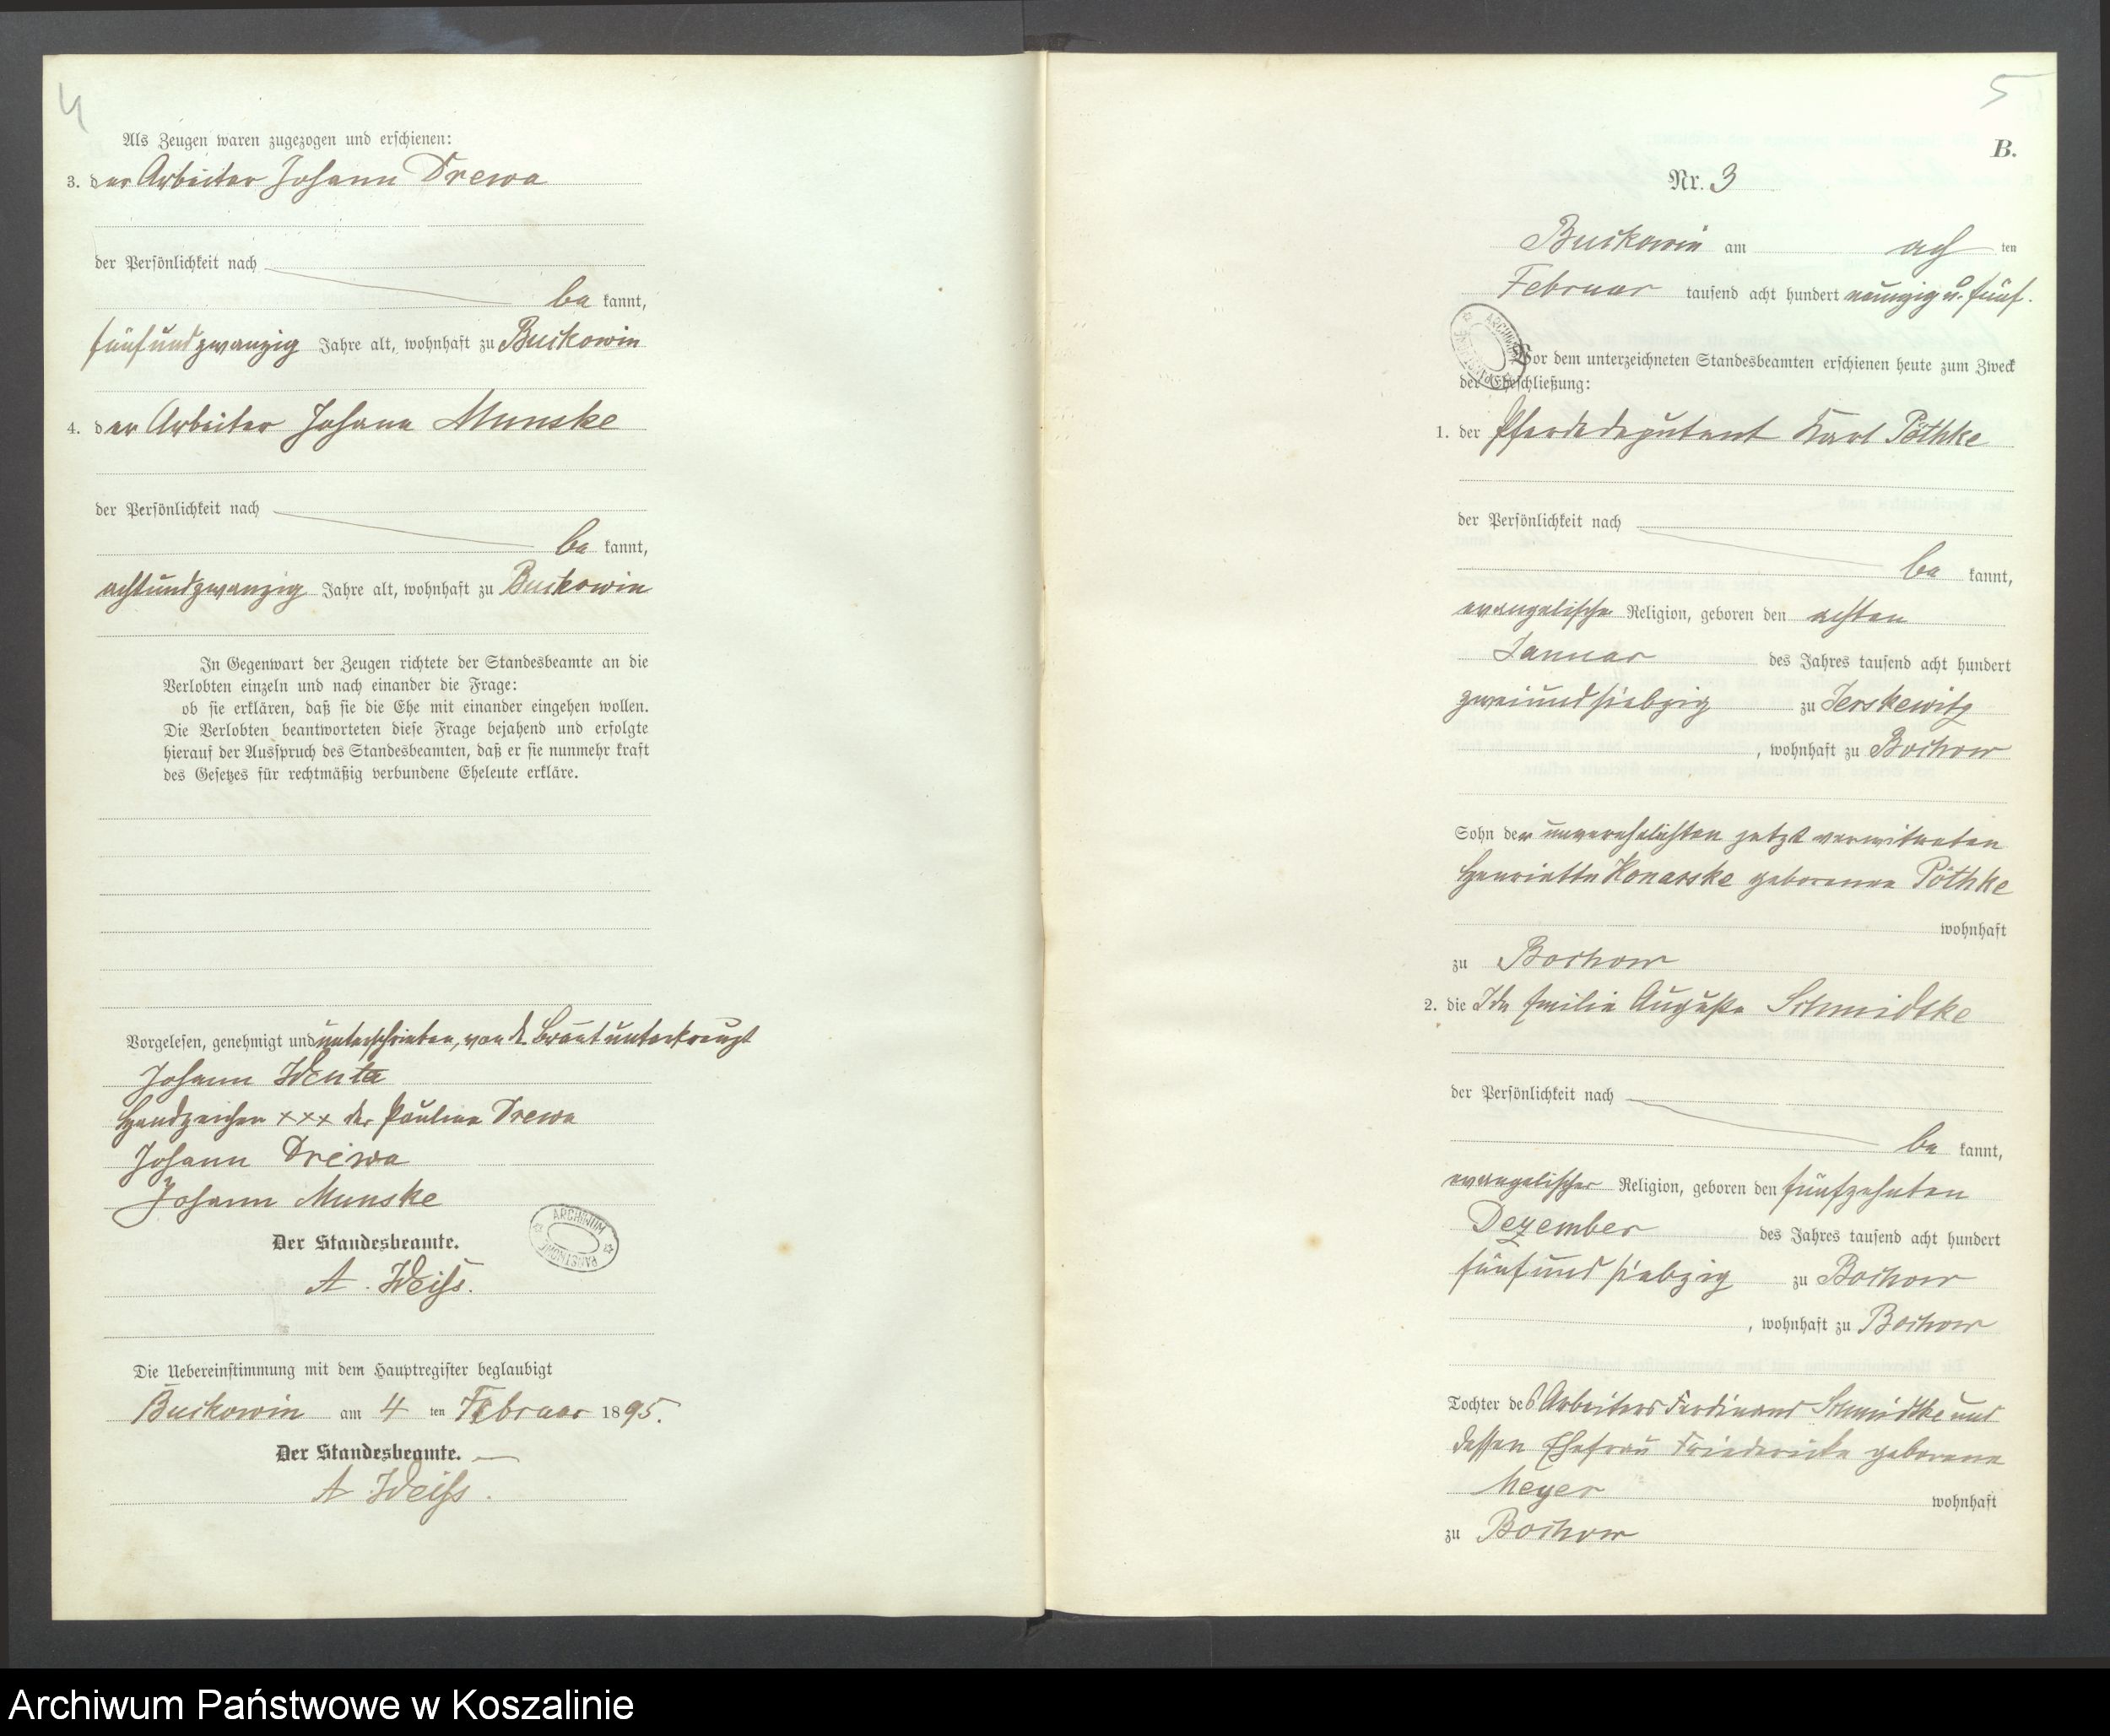 4
Als Zeugen waren zugezogen und erschienen:
3. der Arbeiter Johann Drewa
der Persönlichkeit nach
be kannt,
fünfundzwanzig Jahre alt, wohnhaft zu Buckowin
4. der Arbeiter Johann Munske
der Persönlichkeit nach
be kannt,
achtundzwanzig Jahre alt, wohnhaft zu Buckowin
In Gegenwart der Zeugen richtete der Standesbeamte an die
Verlobten einzeln und nach einander die Frage:
ob sie erklären, daß sie die Ehe mit einander eingehen wollen.
Die Verlobten beantworteten diese Frage bejahend und erfolgte
hierauf der Ausspruch des Standesbeamten, daß er sie nunmehr kraft
des Gesetzes für rechtmäßig verbundene Eheleute erkläre.
Vorgelesen, genehmigt und unterschrieben, von d. Braut unterkreuzt
Johann Wenta
Handzeichen xxx der Pauline Drewa
Johann Drewa
Johann Munske
Der Standesbeamte.
A. Weiss.
ARCHIWUM PAŃSTWOWE
Die Uebereinstimmung mit dem Hauptregister beglaubigt
Buckowin am 4 ten Februar 1895.
Der Standesbeamte.
A Weiss.
5
B.
Nr. 3
Buckowin am ach ten
Februar tausend acht hundert neunzig u. fünf.
ARCHIWUM PAŃSTWOWE
Vor dem unterzeichneten Standesbeamten erschienen heute zum Zweck
der Eheschließung:
1. der Pferdedeputant Karl Pöthke
der Persönlichkeit nach
be kannt,
evangelische Religion, geboren den achten
Januar des Jahres tausend acht hundert
zweiundsiebzig zu Jerskewitz
, wohnhaft zu Bochow
Sohn der unverehelichten jetzt verwitweten
Henriette Konarske geborenen Pöthke
wohnhaft
zu Bochow
2. die Ida Emilie Auguste Schmidtke
der Persönlichkeit nach
be kannt,
evangelischer Religion, geboren den fünfzehnten
Dezember des Jahres tausend acht hundert
fünfundsiebzig zu Bochow
, wohnhaft zu Bochow
Tochter des Arbeiters Ferdinand Schmidtke und
dessen Ehefrau Friedericke geborene
Meyer wohnhaft
zu Bochow
Archiwum Państwowe w Koszalinie